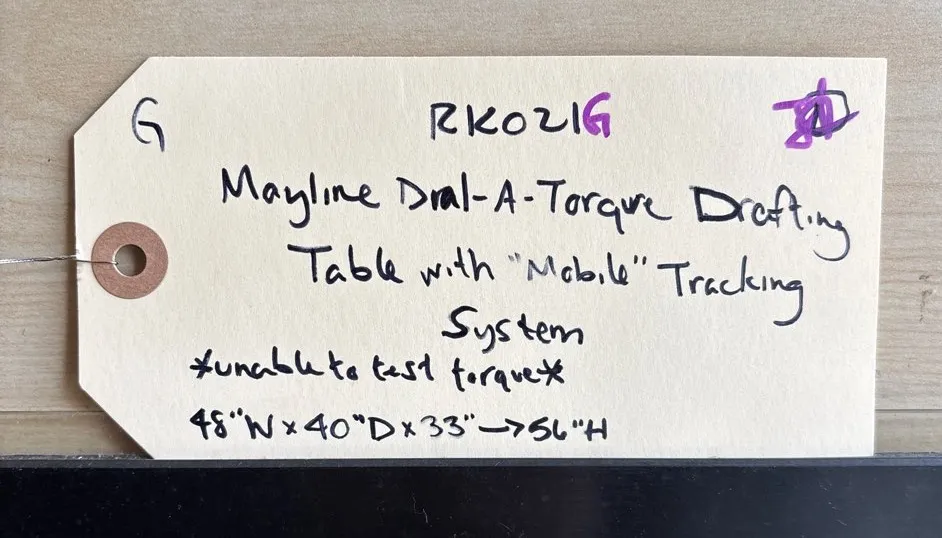 G RK021G
Mayline Dial-A-Torque Drafting
Table with "Mobile" Tracking
System
*unable to test torque*
48"W x 40"D x 33"→56"H